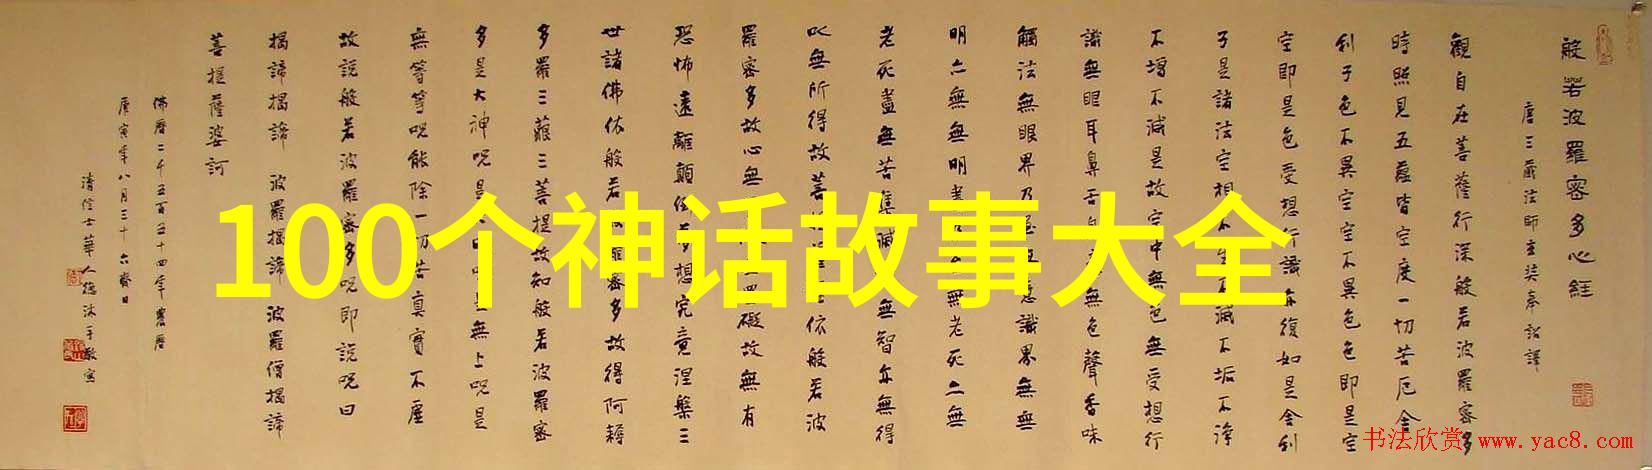 般若波羅密多心経
唐三藏法師玄奘奉詔譯
觀自在菩薩行深般若波羅密多
時照見五蘊皆空度一切苦厄舍
利子色不異空空不異色色即是空
空即是色受想行識亦復如是舍利
子是諸法空相不生不滅不垢不淨
不增不減是故空中無色無受想行
識無眼耳鼻舌身無色聲香味
觸法無眼界乃至無意識界無無
明亦無無明盡乃至無老死亦無
老死盡無苦集滅無智亦無得
以無所得故菩提依般若波
羅密多故心無罣礙故無有
恐怖遠離顛倒夢想究竟涅槃三
世諸佛依般若波羅密多故得阿耨
多羅三藐三菩提故知般若波羅密
多是大神呪是大明呪是無上呪是
無等等呪能除一切苦真實不虛
故說般若波羅密多呪即說呪曰
揭諦揭諦 波羅揭諦 波羅僧揭諦
菩提薩婆訶
佛曆二千五百五十四年農曆
庚寅年八月三十六齋日
清信士華人德沐手敬寫
100个神话故事大全
书法欣赏 www.yac8.com